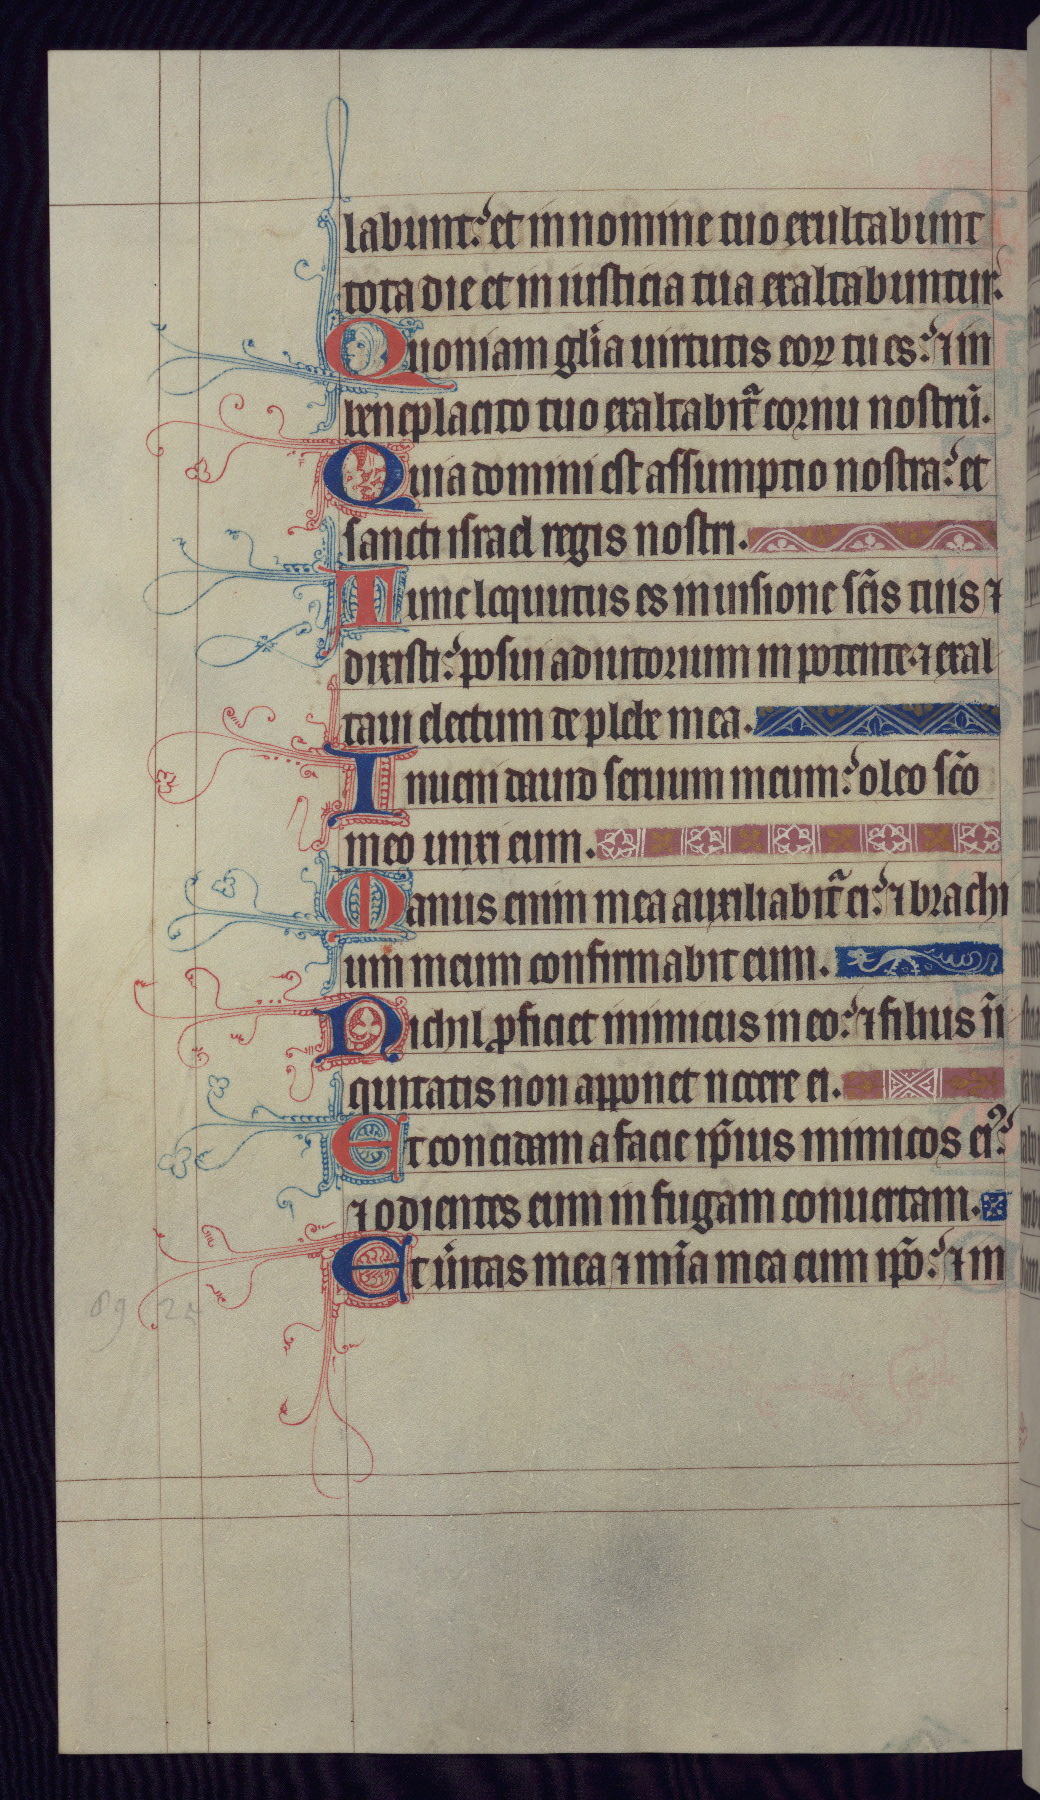 labunt: et in nomine tuo exultabunt
tota die et in iusticia tua exaltabuntur:
Quoniam gl̄ia uirtutis eoꝝ tu es: ⁊ in
beneplacito tuo exaltabit᷑ cornu nostrū.
Quia domini est assumptio nostra: et
sancti israel regis nostri.
Tunc locutus es in uisione sc̄is tuis ⁊
dixisti: posui adiutorium in potente. ⁊ exal
taui electum de plebe mea.
Inueni dauid seruum meum: oleo sc̄o
meo unxi eum.
Manus enim mea auxiliabit᷑ ei: ⁊ brachi
um meum confirmabit eum.
Nichil ꝓficiet inimicus in eo: ⁊ filius īi
quitatis non apponet nocere ei.
Et concidam a facie ip̄ius inimicos ei᷒:
⁊ odientes eum in fugam conuertam.
Et ūitas mea ⁊ mīa mea cum ip̄o: ⁊ in
89 25